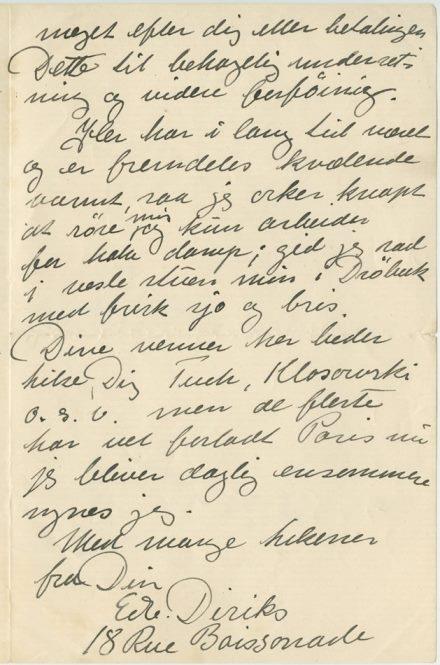 meget efter dig eller betalingen
Dette til behagelig underret-
ning og videre forföining.
Her har i lang tid været
og er fremdeles kvælende
varmt, saa jeg orker knapt
at röre mig kun arbeider
for halv damp; gid jeg sad
i vesle stuen min i Dröbak
med frisk sjö og bris.
Dine venner her beder
hilse Dig Tuch, Klosowski
o. s. v. men de fleste
har vel forladt Paris nu
jeg bliver daglig ensommere
synes jeg.
Med mange hilsener
fra Din
Edv. Diriks
18 Rue Boissonade